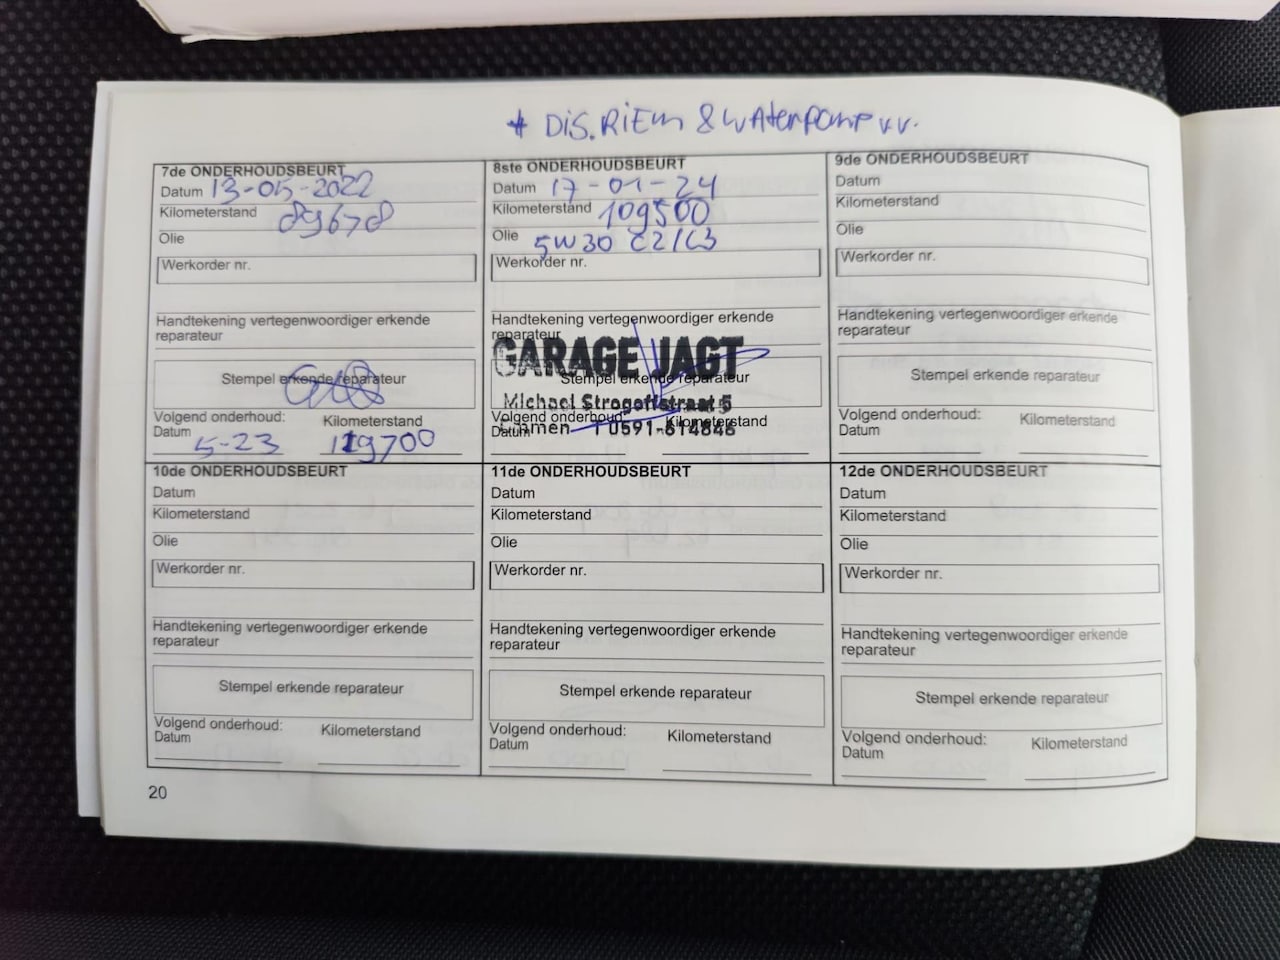 * DIS.RIEM & WATERPOMP V.V.
7de ONDERHOUDSBEURT
Datum 13-05-2022
Kilometerstand 89678
Olie
Werkorder nr.
Handtekening vertegenwoordiger erkende
reparateur
Stempel erkende reparateur
Volgend onderhoud:
Kilometerstand
Datum
5-23 119700
8ste ONDERHOUDSBEURT
Datum 17-01-24
Kilometerstand 109500
Olie 5W30 C2/C3
Werkorder nr.
Handtekening vertegenwoordiger erkende
reparateur
GARAGE JAGT
Stempel erkende reparateur
Michael Strogoffstraat 5
Volgend onderhoud:
Kilometerstand
Datum
Emmen T 0591-614846
9de ONDERHOUDSBEURT
Datum
Kilometerstand
Olie
Werkorder nr.
Handtekening vertegenwoordiger erkende
reparateur
Stempel erkende reparateur
Volgend onderhoud:
Kilometerstand
Datum
10de ONDERHOUDSBEURT
Datum
Kilometerstand
Olie
Werkorder nr.
Handtekening vertegenwoordiger erkende
reparateur
Stempel erkende reparateur
Volgend onderhoud:
Kilometerstand
Datum
11de ONDERHOUDSBEURT
Datum
Kilometerstand
Olie
Werkorder nr.
Handtekening vertegenwoordiger erkende
reparateur
Stempel erkende reparateur
Volgend onderhoud:
Kilometerstand
Datum
12de ONDERHOUDSBEURT
Datum
Kilometerstand
Olie
Werkorder nr.
Handtekening vertegenwoordiger erkende
reparateur
Stempel erkende reparateur
Volgend onderhoud:
Kilometerstand
Datum
20